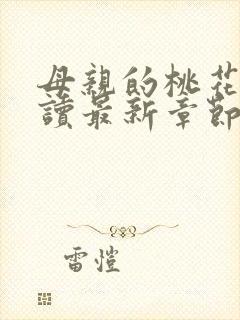 母親的桃花
讀最新章節
雷愷